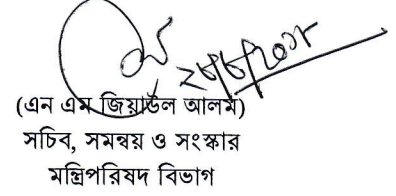 (এন এম জিয়াউল আলম)
সচিব, সমন্বয় ও সংস্কার
মন্ত্রিপরিষদ বিভাগ